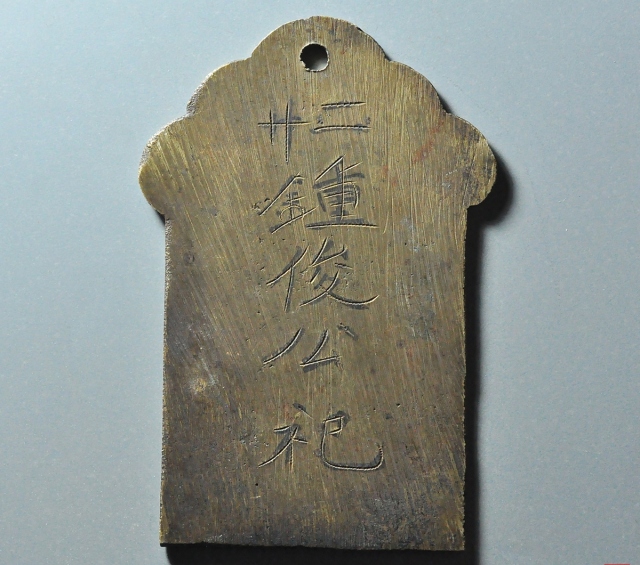 廿二
鍾俊公祀